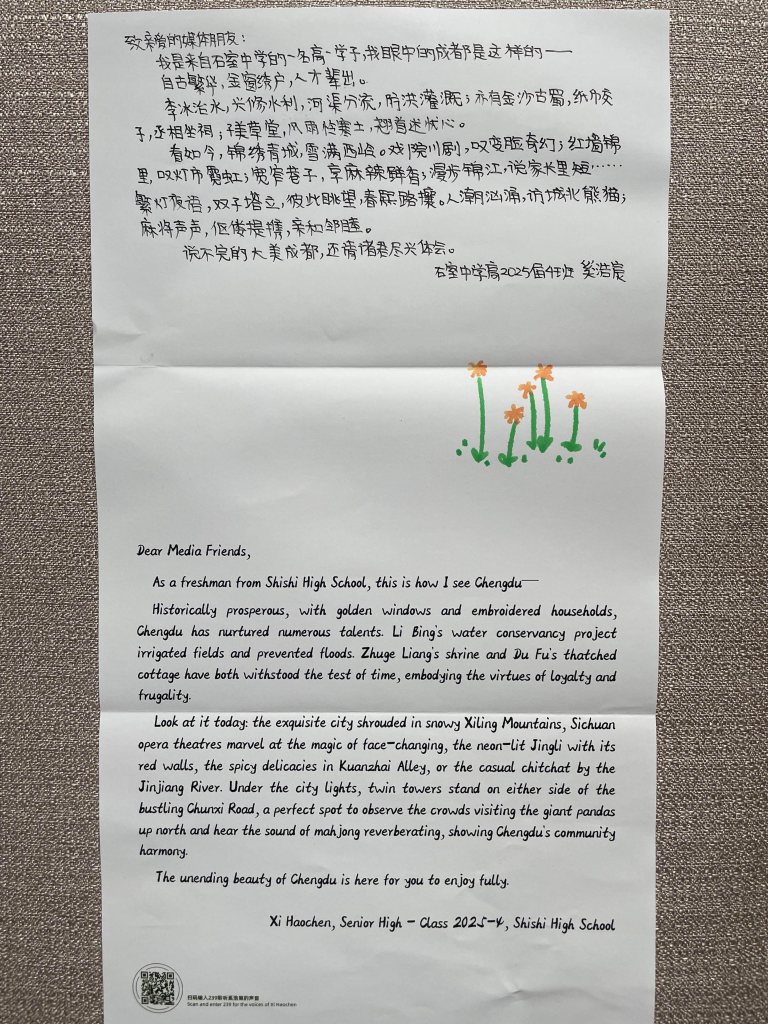 致亲爱的媒体朋友：
我是来自石室中学的一名高一学子，我眼中的成都是这样的——
自古繁华，金窗绣户，人才辈出。
李冰治水，兴修水利，河渠分流，防洪灌溉；亦有金沙古蜀，纸币交
子，丞相坐祠；璞草堂，风雨怜寒士，翘首述忧心。
看如今，锦绣青城，雪满西岭。戏院川剧，叹变脸奇幻；红墙锦
里，叹灯市霓虹；宽窄巷子，享麻辣鲜香；漫步锦江，说家长里短……
繁灯夜语，双子塔立，彼此眺望，春熙路攘。人潮汹涌，访城北熊猫；
麻将声声，伛偻提携，亲和邻睦。
说不完的大美成都，还请诸君尽兴体会。
石室中学高2025届4班 奚浩宸
Dear Media Friends,
As a freshman from Shishi High School, this is how I see Chengdu——
Historically prosperous, with golden windows and embroidered households,
Chengdu has nurtured numerous talents. Li Bing's water conservancy project
irrigated fields and prevented floods. Zhuge Liang's shrine and Du Fu's thatched
cottage have both withstood the test of time, embodying the virtues of loyalty and
frugality.
Look at it today: the exquisite city shrouded in snowy Xiling Mountains, Sichuan
opera theatres marvel at the magic of face-changing, the neon-lit Jingli with its
red walls, the spicy delicacies in Kuanzhai Alley, or the casual chitchat by the
Jinjiang River. Under the city lights, twin towers stand on either side of the
bustling Chunxi Road, a perfect spot to observe the crowds visiting the giant pandas
up north and hear the sound of mahjong reverberating, showing Chengdu's community
harmony.
The unending beauty of Chengdu is here for you to enjoy fully.
Xi Haochen, Senior High - Class 2025-4, Shishi High School
扫码输入239聆听奚浩宸的声音
Scan and enter 239 for the voices of Xi Haochen